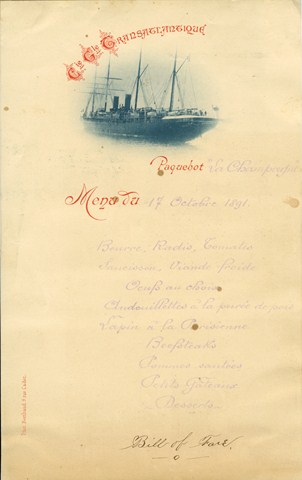 Cie Gle Transatlantique
Paquebot "La Champagne
Menu du 17 Octobre 1891.
Beurre, Radis, Tomates
Saucisson, Viande froide
Oeufs au choix
Andouillettes à la purée de pois
Lapin à la Parisienne
Beefsteaks
Pommes sautées
Petits Gâteaux
Desserts
Bill of Fare.